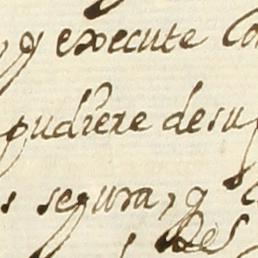 q execute Co
pudiere desu
s segura, q
Des